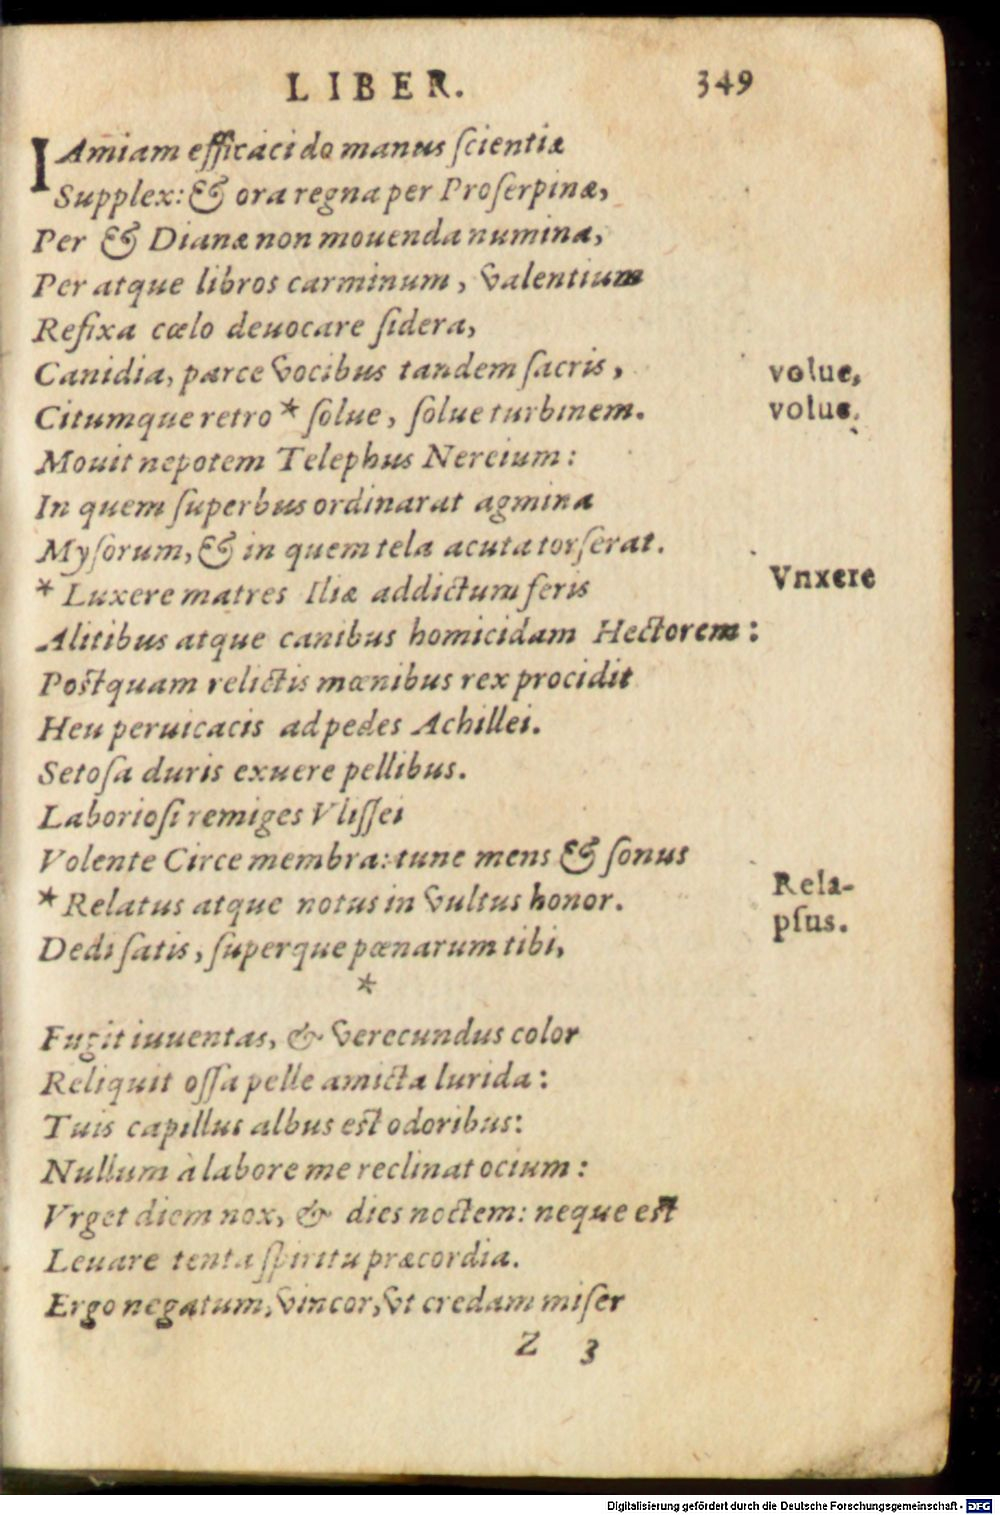 LIBER. 349
IAmiam efficaci do manus ſcientiæ
Supplex: & ora regna per Proſerpinæ,
Per & Dianæ non mouenda numina,
Per atque libros carminum, valentium
Refixa cœlo deuocare ſidera,
Canidia, parce vocibus tandem ſacris,
volue,
Citumque retro * ſolue, ſolue turbinem.
volue.
Mouit nepotem Telephus Nereium:
In quem ſuperbus ordinarat agmina
Myſorum, & in quem tela acuta torſerat.
* Luxere matres Iliæ addictum feris
Vnxere
Alitibus atque canibus homicidam Hectorem:
Poſtquam relictis mœnibus rex procidit
Heu peruicacis ad pedes Achillei.
Setoſa duris exuere pellibus.
Laborioſi remiges Vliſſei
Volente Circe membra: tunc mens & ſonus
* Relatus atque notus in vultus honor.
Rela-
pſus.
Dedi ſatis, ſuperque pœnarum tibi,
*
Fugit iuuentas, & verecundus color
Reliquit oſſa pelle amicta lurida:
Tuis capillus albus eſt odoribus:
Nullum à labore me reclinat ocium:
Vrget diem nox, & dies noctem: neque eſt
Leuare tenta ſpiritu præcordia.
Ergo negatum, vincor, vt credam miſer
Z 3
Digitalisierung gefördert durch die Deutsche Forschungsgemeinschaft - DFG